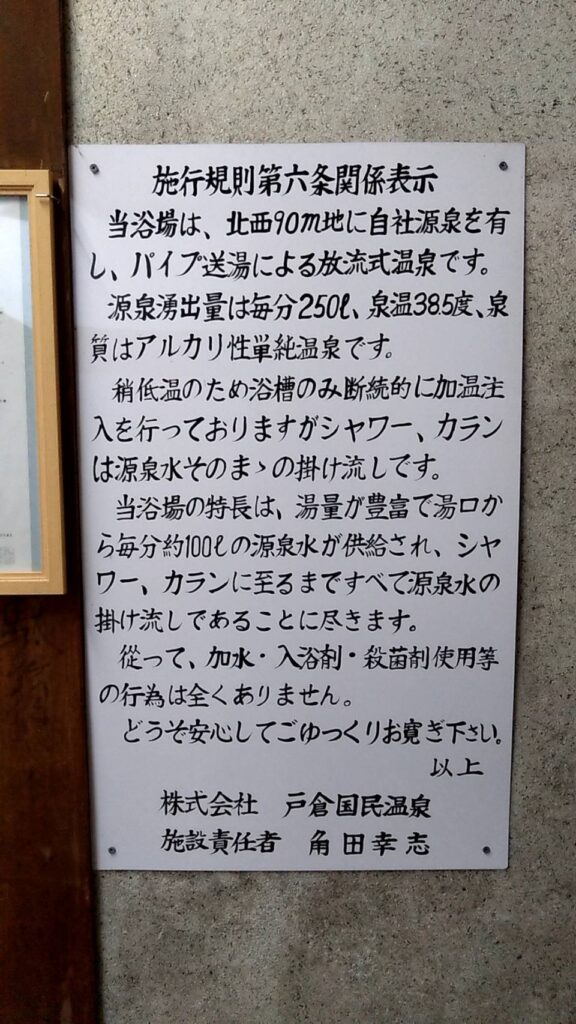 施行規則第六条関係表示
当浴場は、北西90m地に自社源泉を有
し、パイプ送湯による放流式温泉です。
源泉湧出量は毎分250ℓ、泉温38.5度、泉
質はアルカリ性単純温泉です。
稍低温のため浴槽のみ断続的に加温注
入を行っておりますがシャワー、カラン
は源泉水そのまゝの掛け流しです。
当浴場の特長は、湯量が豊富で湯口か
ら毎分約100ℓの源泉水が供給され、シャ
ワー、カランに至るまですべて源泉水の
掛け流しであることに尽きます。
従って、加水・入浴剤・殺菌剤使用等
の行為は全くありません。
どうぞ安心してごゆっくりお寛ぎ下さい。
以上
株式会社 戸倉国民温泉
施設責任者 角田幸志